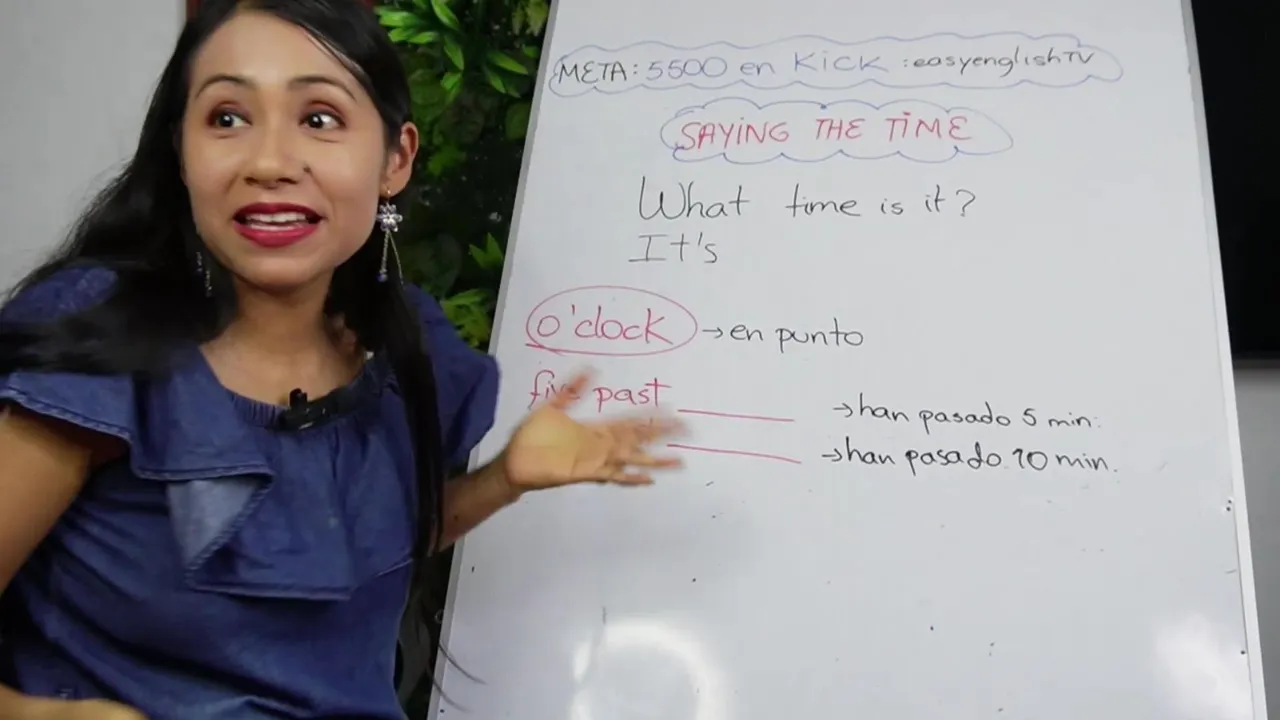 META: 5500 en Kick :easyenglishTV
SAYING THE TIME
What time is it?
It's
o'clock → en punto
five past ______ → han pasado 5 min.
______ → han pasado 10 min.